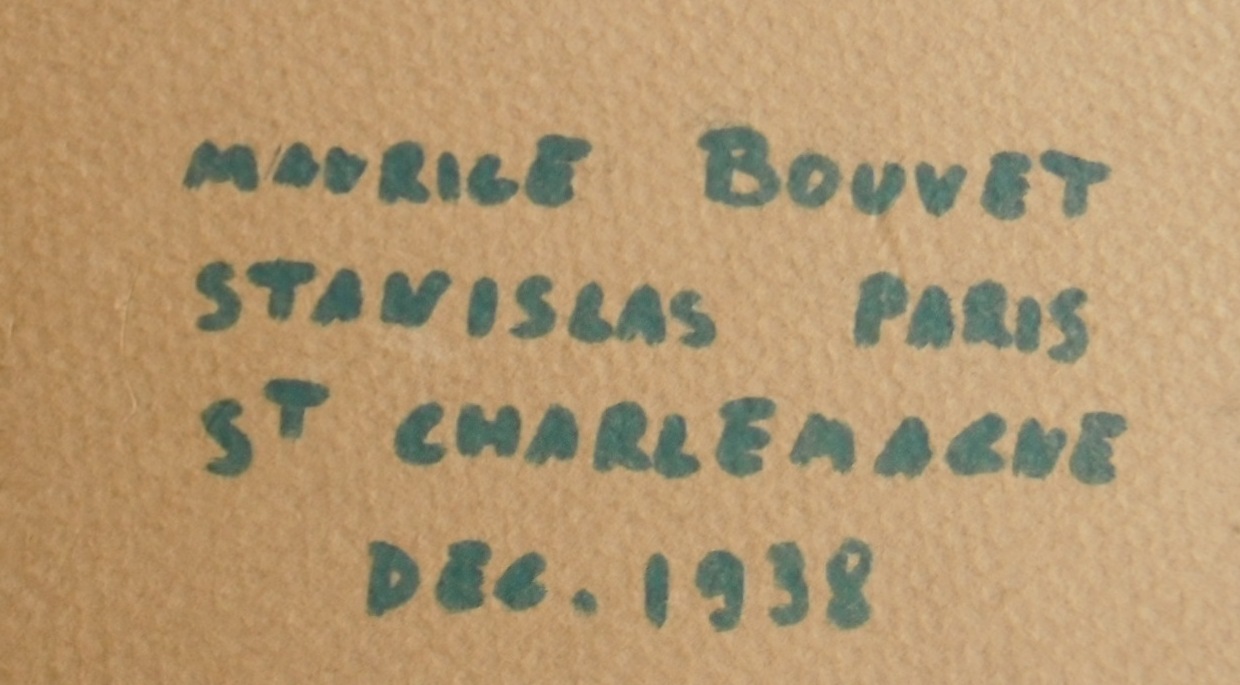 MAURICE BOUVET
STANISLAS PARIS
ST CHARLEMAGNE
DEC. 1938